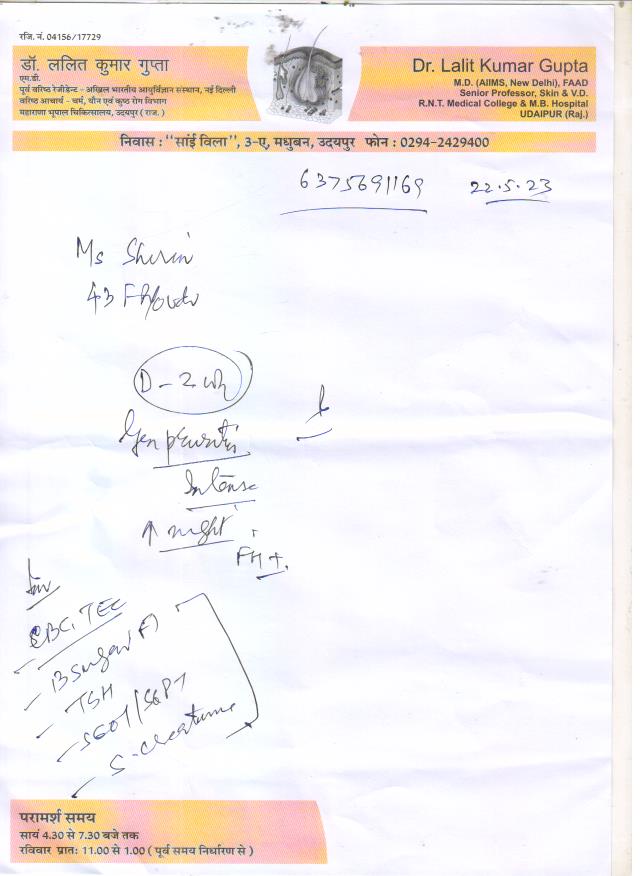 रजि. नं. 04156/17729
डॉ. ललित कुमार गुप्ता
एम.डी.
पूर्व वरिष्ठ रेजीडेन्ट - अखिल भारतीय आयुर्विज्ञान संस्थान, नई दिल्ली
वरिष्ठ आचार्य - चर्म, यौन एवं कुष्ठ रोग विभाग
महाराणा भूपाल चिकित्सालय, उदयपुर (राज.)
Dr. Lalit Kumar Gupta
M.D. (AIIMS, New Delhi), FAAD
Senior Professor, Skin & V.D.
R.N.T. Medical College & M.B. Hospital
UDAIPUR (Raj.)
निवास : "सांई विला", 3-ए, मधुबन, उदयपुर फोन : 0294-2429400
6375691169 22.5.23
Ms Shirin
43 F
D-2
Gen pruritis
Intense
↑ night
FH+.
Inv
CBC, TEC
B Sugar F
TSH
SGOT/SGPT
S. Creatinine
परामर्श समय
सायं 4.30 से 7.30 बजे तक
रविवार प्रातः 11.00 से 1.00 (पूर्व समय निर्धारण से)